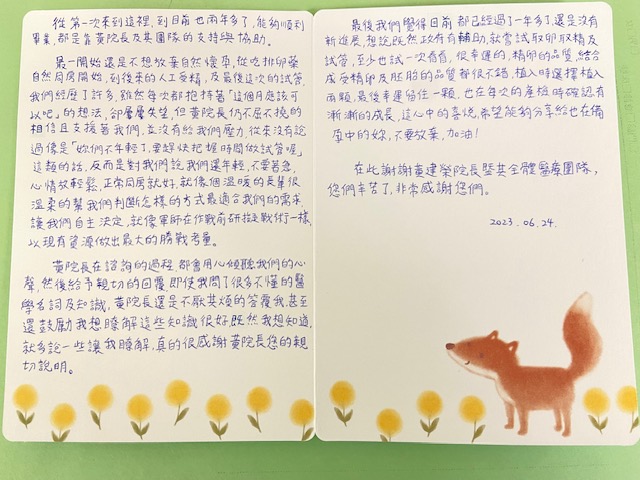 從第一次來到這裡,到目前也兩年多了,能夠順利
畢業,都是靠黃院長及其團隊的支持與協助。
最一開始還是不想放棄自然懷孕,從吃排卵藥
自然同房開始,到後來的人工受精,及最後這次的試管,
我們經歷了許多,雖然每次都抱持著「這個月應該可
以吧」的想法,卻屢屢失望,但黃院長仍不屈不撓的
相信且支援著我們,並沒有給我們壓力,從來沒有說
過像是「妳們不年輕了,要趕快把握時間做試管喔」
這類的話,反而是對我們說我們還年輕,不要著急,
心情放輕鬆,正常同房就好,就像個溫暖的長輩很
溫柔的幫我們判斷怎樣的方式最適合我們的需求,
讓我們自主決定,就像軍師在作戰前研擬戰術一樣,
以現有資源做出最大的勝戰考量。
黃院長在諮詢的過程,都會用心傾聽我們的心
聲,然後給予親切的回覆,即使我問了很多不懂的醫
學名詞及知識,黃院長還是不厭其煩的答覆我,甚至
還鼓勵我想瞭解這些知識很好,既然我想知道,
就多說一些讓我瞭解,真的很感謝黃院長您的親
切說明。
最後我們覺得目前都已經過了一年多了,還是沒有
新進展,想說既然政府有輔助,就嘗試取卵取精及
試管,至少也試一次看看,很幸運的,精卵的品質、結合
成受精卵及胚胎的品質都很不錯,植入時選擇植入
兩顆,最後幸運留住一顆,也在每次的產檢時確認有
漸漸的成長,這心中的喜悅,希望能夠分享給也在備
孕中的妳,不要放棄,加油!
在此謝謝黃建榮院長暨其全體醫療團隊,
您們辛苦了,非常感謝您們。
2023.06.24.